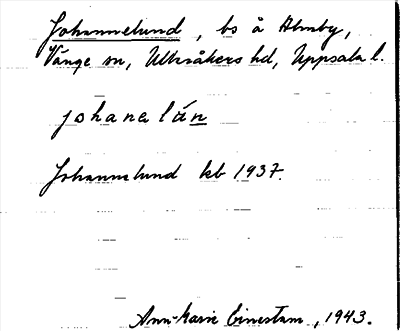 Johannelund, bs å Almby,
Vänge sn, Ulleråkers hd, Uppsala l.
johanelún
Johannelund kb 1937.
Ann-Marie Einestam, 1943.